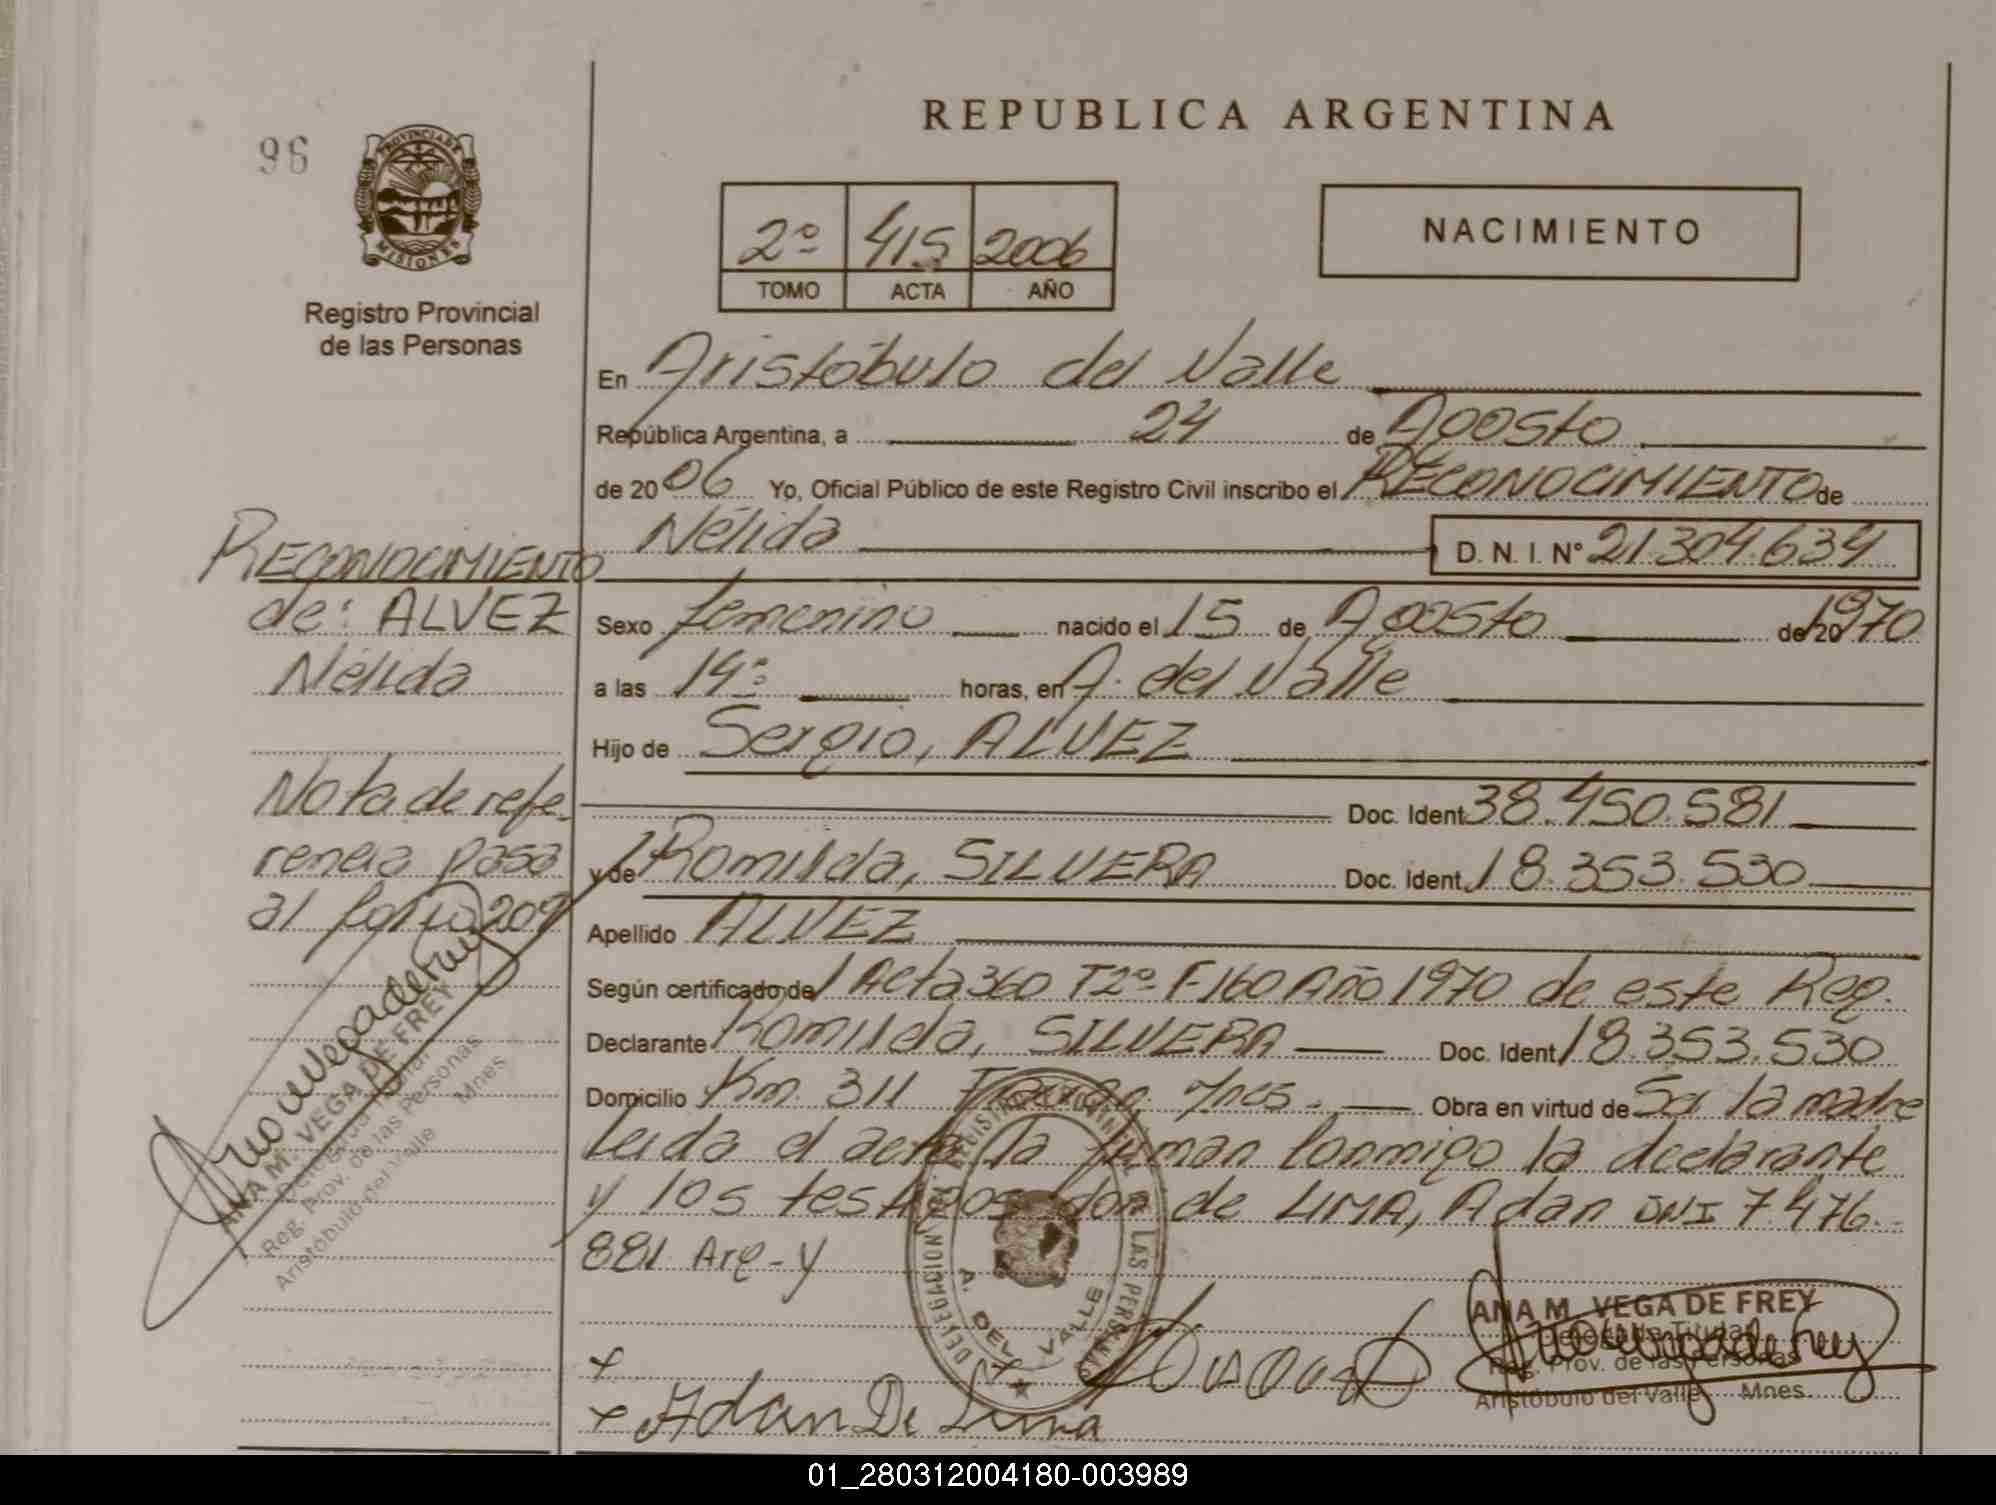 REPUBLICA ARGENTINA
96
PROVINCIA DE
MISIONES
Registro Provincial
de las Personas
2º 415 2006
TOMO ACTA AÑO
NACIMIENTO
En Aristóbulo del Valle
República Argentina, a 24 de Agosto
de 2006 Yo, Oficial Público de este Registro Civil inscribo el RECONOCIMIENTO de
Nélida D. N. I. Nº 21.304.634
Sexo femenino nacido el 15 de Agosto de 20 1970
a las 14º horas, en A. del Valle
Hijo de Sergio, ALVEZ
Doc. Ident. 38.450.581
y de Romilda, SILVERA Doc. Ident. 18.353.530
Apellido ALVEZ
Según certificado de Acta 360 T2º F160 Año 1970 de este Reg.
Declarante Romilda, SILVERA Doc. Ident. 18.353.530
Domicilio Km. 311 Mnes. Obra en virtud de Ser la madre
Leida el acta la firman conmigo la declarante
y los testigos don de LIMA, Adan DNI 7.476.
881 Arg - y
RECONOCIMIENTO
de: ALVEZ
Nélida
Nota de refe
rencia pasa
al folio 209
ANA M. VEGA DE FREY
Delegada Titular
Reg. Prov. de las Personas
Aristóbulo del Valle Mnes
DELEGACION REGISTRO PROVINCIAL DE LAS PERSONAS
A. DEL VALLE
ANA M. VEGA DE FREY
Delegada Titular
Reg. Prov. de las Personas
Aristóbulo del Valle Mnes.
Adan De Lima
01_280312004180-003989